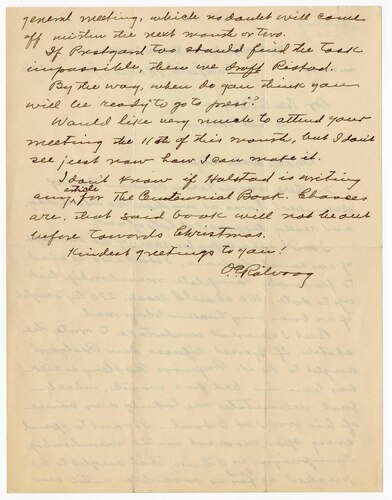 general meeting, which no doubt will come
off within the next month or two.
If Prestgard too should find the task
impossible, then we draft Ristad.
By the way, when do you think you
will be ready to go to press?
Would like very much to attend your
meeting the 11th of this month, but I don't
see just now how I can make it.
I don't know if Halstad is writing
any article for The Centennial Book. Chances
are, that said book will not be out
before towards Christmas.
Kindest greetings to you!
O. E. Rölvaag